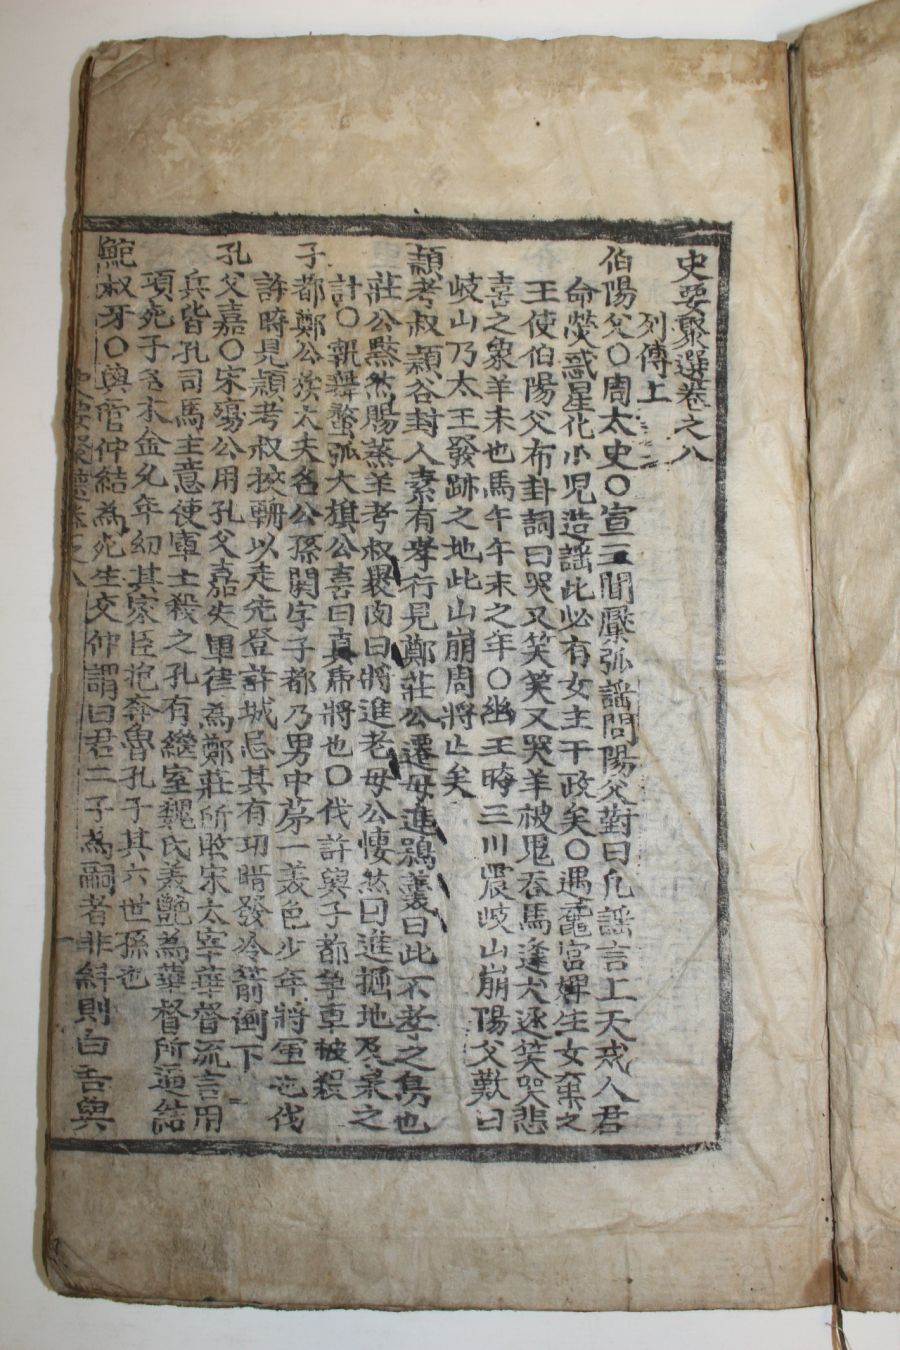 史要聚選卷之八
列傳上
伯陽父○周太史○宣王聞檿弧謠問陽父對曰凡謠言上天戒人君
命熒惑星化小児造謠此必有女主干政矣○遇鼁宮婢生女棄之
王使伯陽父布卦詞曰哭又笑笑又哭羊被鬼吞馬逢犬逐笑哭悲
喜之象羊未也馬午午未之年○幽王時三川震岐山崩陽父歎曰
岐山乃太王發跡之地此山崩周將亾矣
頴考叔頴谷封人素有孝行見鄭莊公遷母進鴞羹曰此不孝之鳥也
莊公黙然賜蒸羊考叔褁肉曰將進老母公悽然曰進掘地及泉之
計○能舞蝥弧大旗公喜曰真虎將也○伐許與子都爭車被殺
子都鄭公族大夫名公孫閼字子都乃男中苐一美色少年將軍也伐
許時見頴考叔挾輈以走先登許城忌其有功暗發冷箭倒下
孔父嘉○宋殤公用孔父嘉失軍律為鄭莊所敗宋太宰華督流言用
兵皆孔司馬主意使軍士殺之孔有継室魏氏美艶為華督所逼結
項死子名木金父年幼其家臣抱奔魯孔子其六世孫也
鮑叔牙○與管仲結為死生交仲謂曰君二子為嗣者非糾則白吾與
史要聚選卷之八